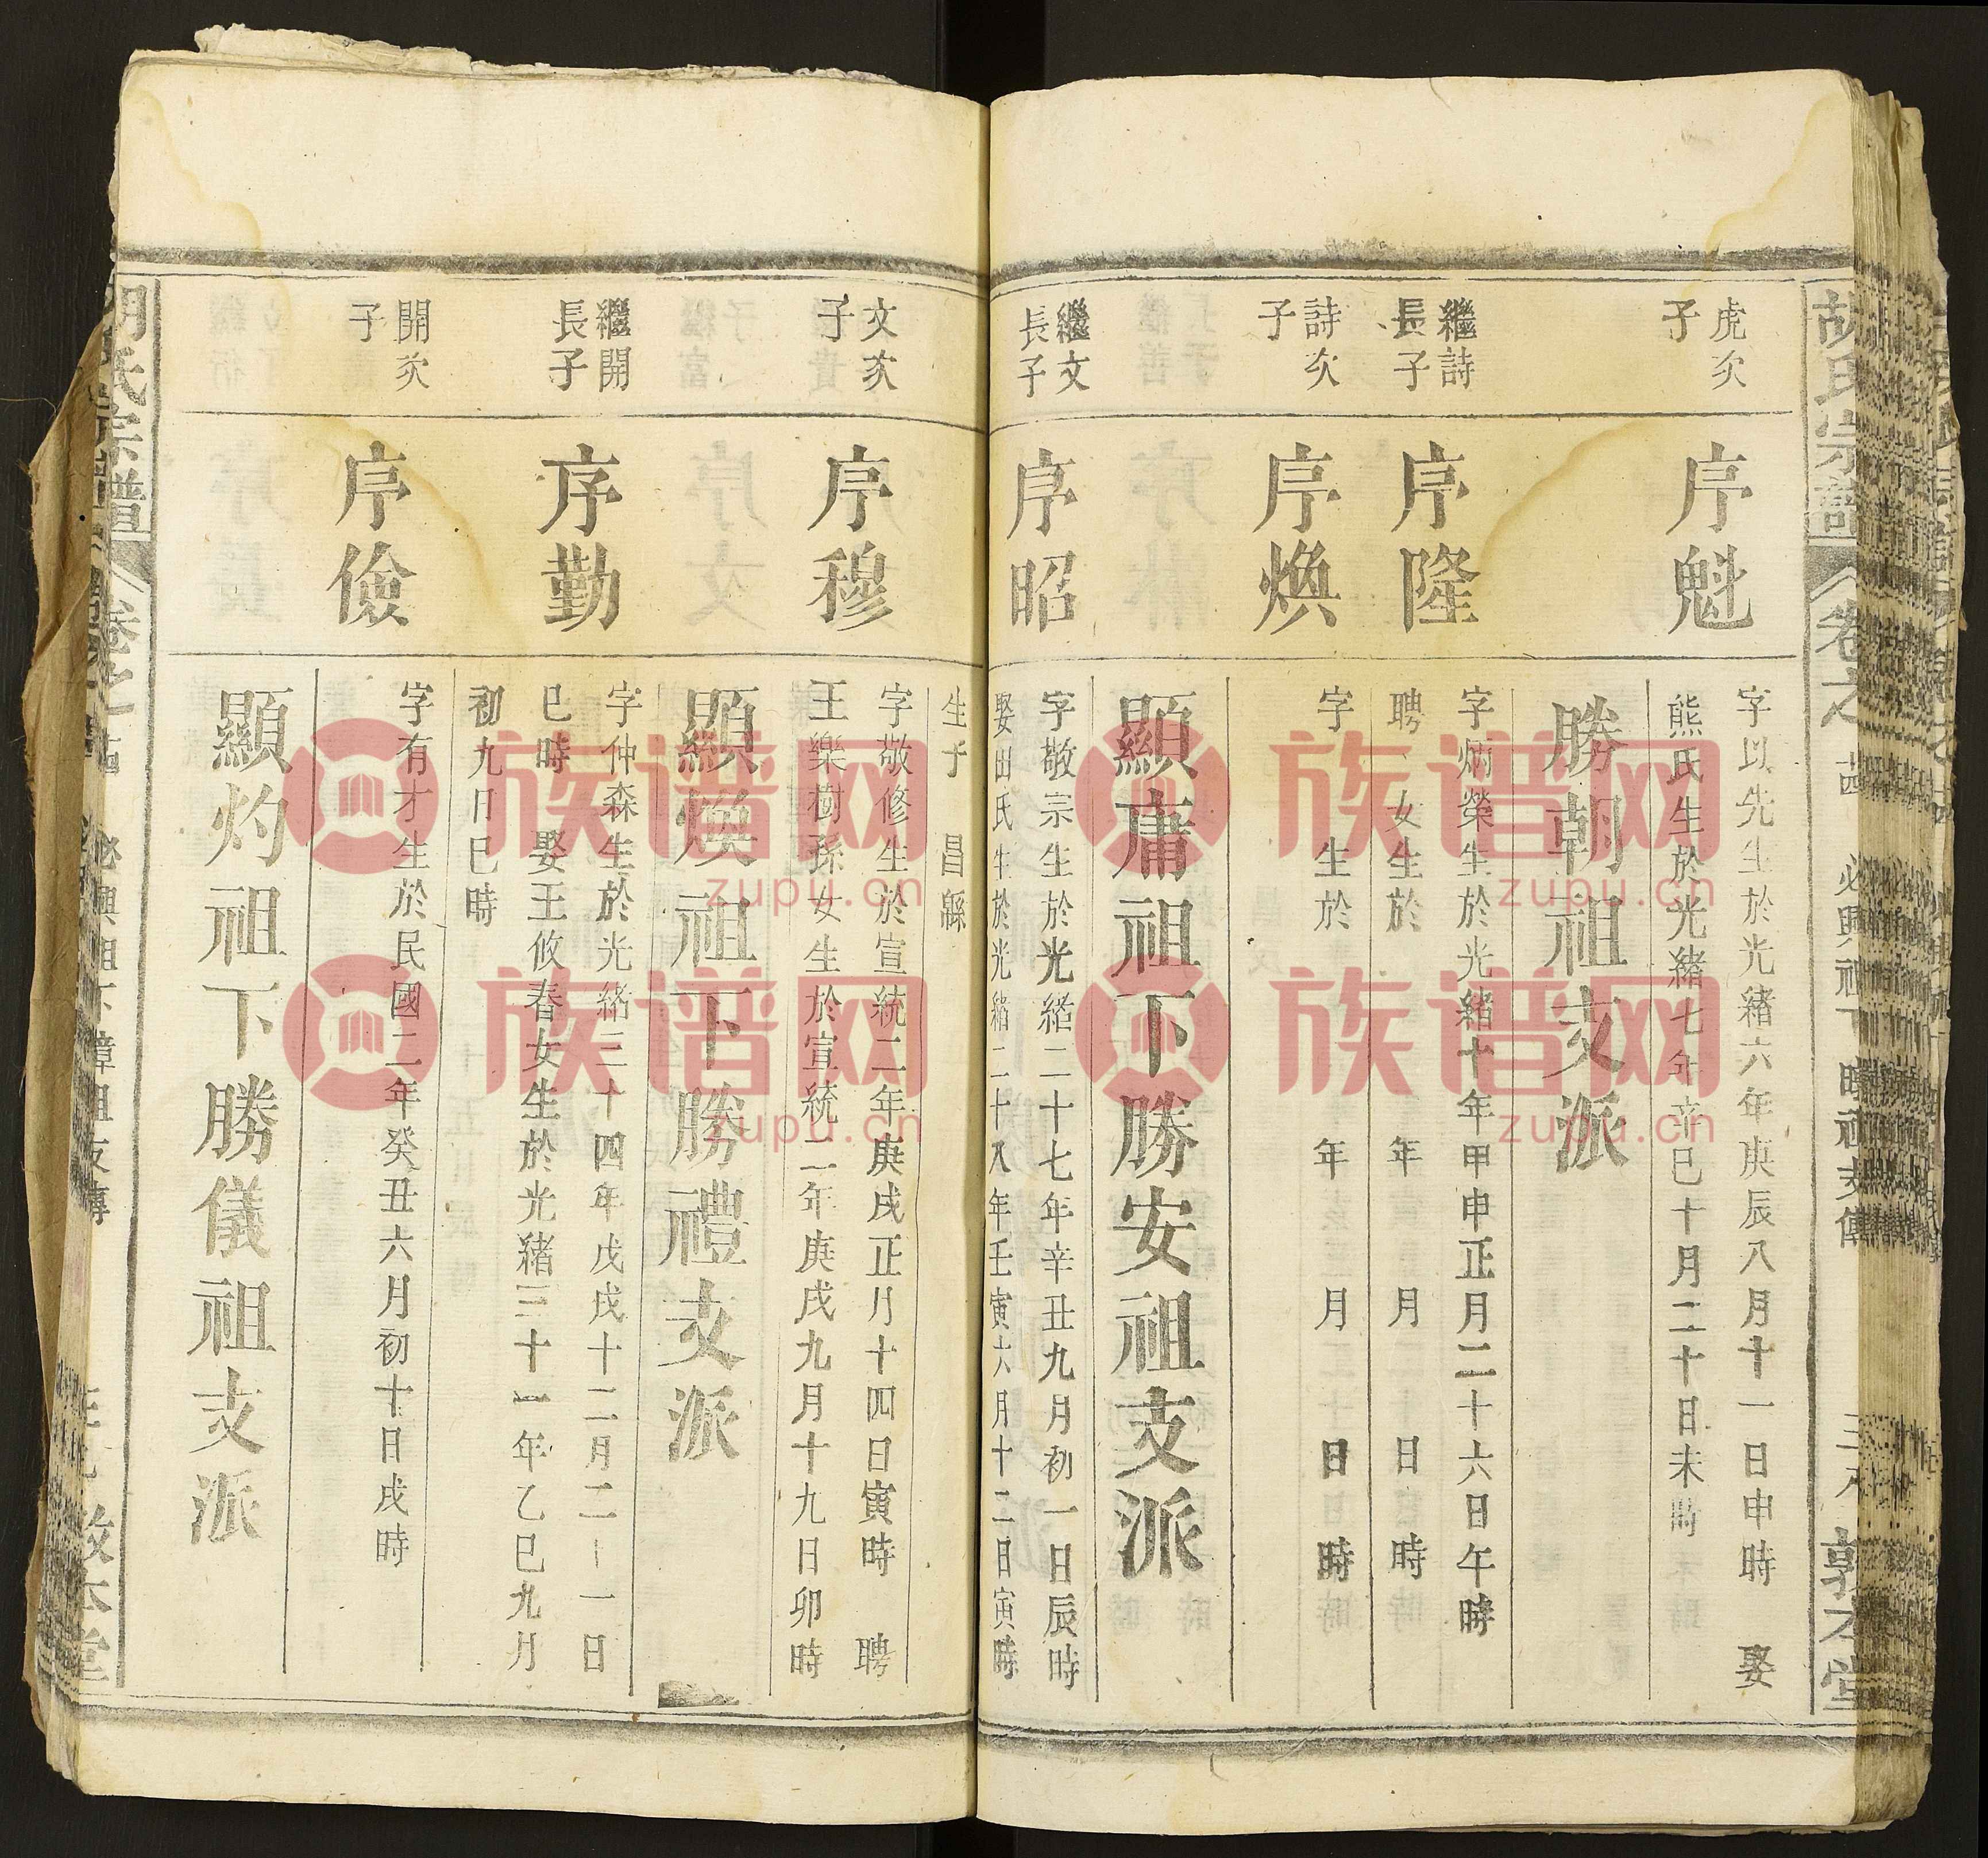 胡氏宗譜
卷之
必興祖下
祖支傳
三八
敦本堂
虎次
子
序魁
字以先生於光緒六年庚辰八月十一日申時 娶
熊氏生於光緒七年辛巳十月二十日未時
勝朝祖支派
繼詩
長子
序隆
字炳榮生於光緒十年甲申正月二十六日午時
聘 女生於 年 月 日 時
詩次
子
序煥
字 生於 年 月 日 時
顯庸祖下勝安祖支派
繼文
長子
序昭
字敬宗生於光緒二十七年辛丑九月初一日辰時
娶田氏生於光緒二十八年壬寅六月十二日寅時
生子 昌緜
文次
子
序穆
字敬修生於宣統二年庚戌正月十四日寅時 聘
王樂樹孫女生於宣統二年庚戌九月十九日卯時
顯煥祖下勝禮支派
繼開
長子
序勤
字仲森生於光緒三十四年戊戌十二月二十一日
巳時 娶王攸春女生於光緒三十一年乙巳九月
初九日巳時
開次
子
序儉
字有才生於民國二年癸丑六月初十日戌時
顯灼祖下勝儀祖支派
胡氏宗譜
卷之
必興祖下璋祖支傳
敦本堂
族谱网
zupu.cn
族谱网
zupu.cn
族谱网
zupu.cn
族谱网
zupu.cn